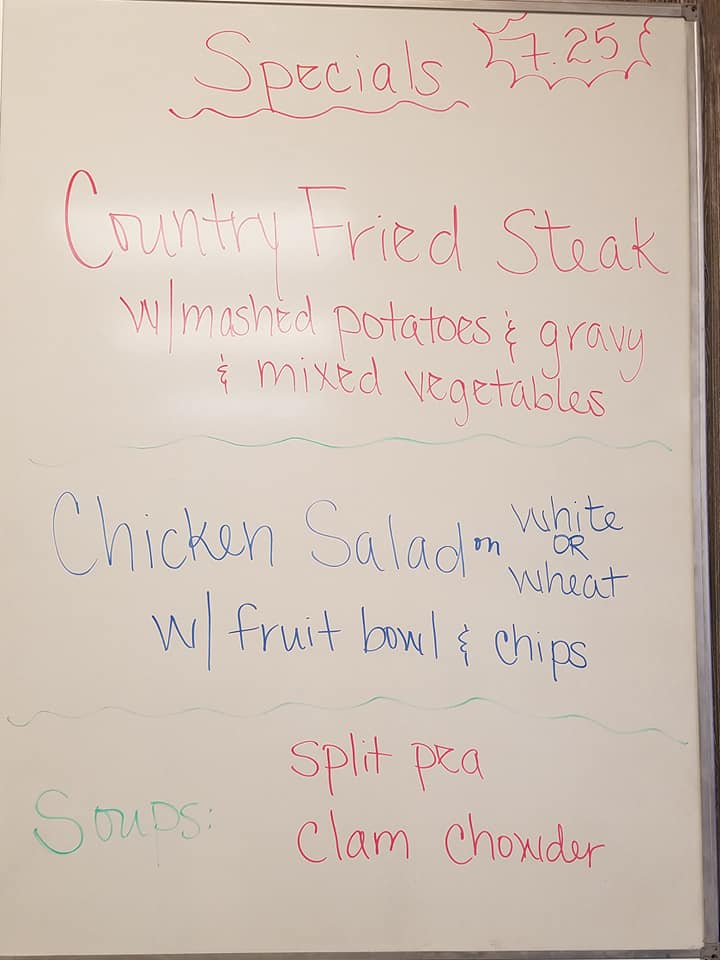 Specials 7.25
Country Fried Steak
w/mashed potatoes & gravy
& mixed vegetables
Chicken Salad on white OR wheat
w/ fruit bowl & chips
Soups: split pea
clam chowder